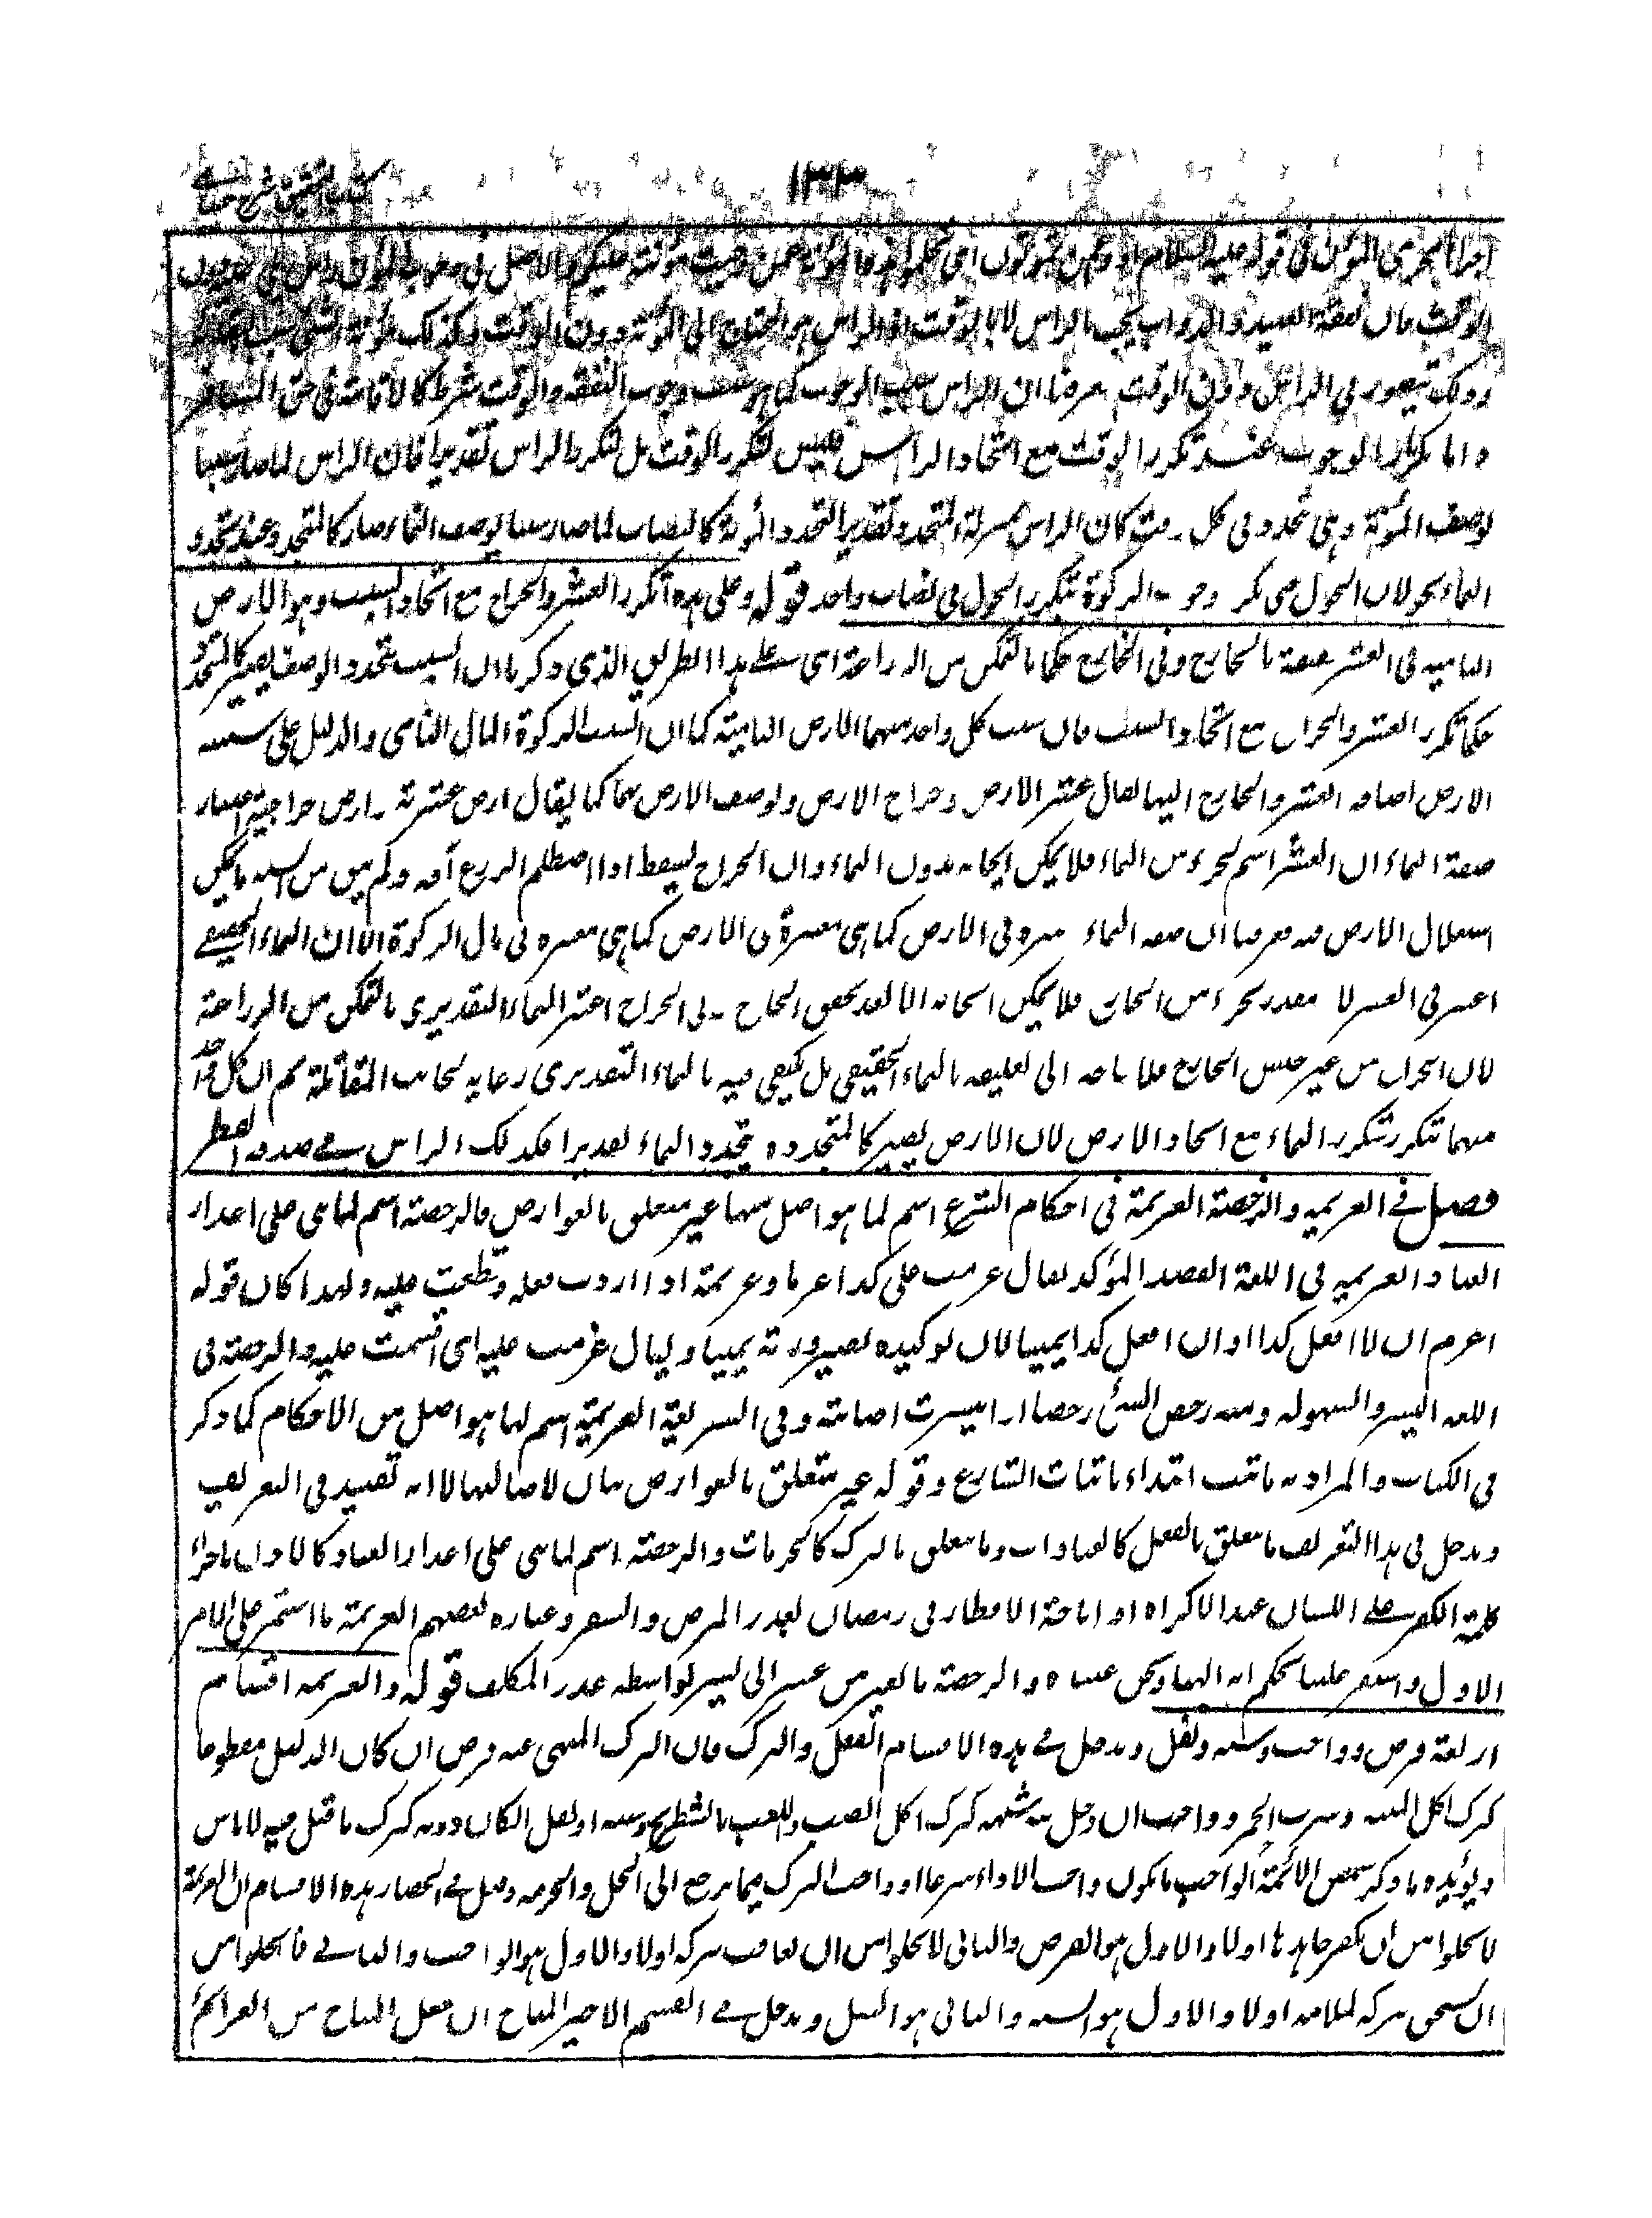 ١٣٣
اجراها مجرى المؤن في قوله عليه السلام ادوا عمن تمونون اى تحملوا هذه المؤنة عمن وجبت مؤنته عليكم والاصل في وجوب المؤن رأس يلى عليه دون
الوقت فان نفقة العبيد والدواب يجب بالراس لا بالوقت اذ الراس هو المحتاج الى المؤنة دون الوقت وكذلك مؤنة الشئ سبب لبقائه
وذلك يتصور في الراس دون الوقت فعرفنا ان الراس سبب الوجوب كما هو سبب وجوب النفقة والوقت شرط كالاقامة في حق المسافر
واما تكرار الوجوب عند تكرر الوقت مع اتحاد الراس فليس لتكرر الوقت بل لتكرر الراس تقديرا فان الراس لما صار سببا
بوصف المؤنة وهى تتجدد في كل وقت كان الراس بمنزلة المتجدد تقديرا لتجدد المؤنة كالنصاب لما صار سببا بوصف النماء صار كالمتجدد عند تجدد
النماء بحولان الحول حتى تكرر وجوب الزكوة بتكرر الحول في نصاب واحد قوله وعلى هذا تكرر العشر والخراج مع اتحاد السبب وهو الارض
النامية في العشر حقيقة بالخارج وفي الخارج حكما بالتمكن من الزراعة اى على هذا الطريق الذي ذكرنا ان السبب بتجدد الوصف يصير كالمتجدد
حكما تكرر العشر والخراج مع اتحاد السبب فان سبب كل واحد منهما الارض النامية كما ان السبب الزكوة المال النامى والدليل على سببية
الارض اضافة العشر والخارج اليها يقال عشر الارض وخراج الارض وتوصف الارض بهما كما يقال ارض عشرية وارض خراجية واعتبار
صفة النماء ان العشر اسم لجزء من النماء فلا يمكن ايجابه بدون النماء وان الخراج يسقط اذا اصطلم الزرع آفة ولم يبق من السنة ما يمكن
استغلال الارض فيه فعرفنا ان صفة النماء معتبرة في الارض كما هى معتبرة في مال الزكوة الا ان النماء الحقيقى
اعتبر في العشر لانه مقدر بجزء من الخارج فلا يمكن ايجابه الا بعد تحقق الخارج وفي الخراج اعتبر النماء التقديرى بالتمكن من الزراعة
لان الخراج من غير جنس الخارج فلا حاجة الى تعليقه بالنماء الحقيقى بل يكتفى فيه بالنماء التقديرى رعاية لجانب المقاتلة ثم ان كل واحد
منهما تتكرر بتكرر النماء مع اتحاد الارض لان الارض يصير كالمتجددة بتجدد النماء تقديرا فكذلك الراس في صدقة الفطر
فصل في العزيمة والرخصة العزيمة في احكام الشرع اسم لما هو اصل منها غير متعلق بالعوارض والرخصة اسم لما بنى على اعذار
العباد العزيمة في اللغة القصد المؤكد يقال عزمت على كذا عزما وعزيمة اذا اردت فعله وقطعت عليه ولهذا كان قوله
اعزم ان لا افعل كذا او ان افعل كذا يمينا لان توكيده لصيرورته يمينا ويقال عزمت عليه اى اقسمت عليه والرخصة في
اللغة اليسر والسهولة ومنه رخص الشئ رخصا اذا تيسرت اصابته وفي الشريعة العزيمة اسم لما هو اصل من الاحكام كما ذكر
في الكتاب والمراد به ما ثبت ابتداء باثبات الشارع وقوله غير متعلق بالعوارض بيان لاصالتها لا انه تقييد في التعريف
ويدخل في هذا التعريف ما يتعلق بالفعل كالعبادات وما يتعلق بالترك كالحرمات والرخصة اسم لما بنى على اعذار العباد كالاذن باجراء
كلمة الكفر على اللسان عند الاكراه او اباحة الافطار في رمضان بعذر المرض والسفر وعبارة بعضهم العزيمة ما استمر على الامر
الاول واستقر علينا بحكم انه الهنا ونحن عبيده والرخصة ما تغير من عسر الى يسر بواسطة عذر المكلف قوله والعزيمة اقسام
اربعة فرض وواجب وسنة ونفل ويدخل في هذه الاقسام الفعل والترك فان الترك المنهى عنه فرض ان كان الدليل مقطوعا
كترك اكل الميتة وشرب الخمر وواجب ان دخل فيه شبهة كترك اكل الضب واللعب بالشطرنج وسنة او نفل ان كان دونه كترك ما قيل فيه لا باس
ويؤيده ما ذكر شمس الائمة الواجب ما يكون واجب الاداء شرعا او واجب الترك فيما يرجع الى الحل والحرمة وقيل في انحصار هذه الاقسام ان العزيمة
لا يخلوا من ان يكفر جاحدها اولا والاول هو الفرض والثانى لا يخلوا من ان يعاقب بتركه اولا والاول هو الواجب والثانى فلا يخلوا من
ان يستحق بتركه الملامة اولا والاول هو السنة والثانى هو النفل ويدخل في القسم الاخير المباح ان جعل المباح من العزائم